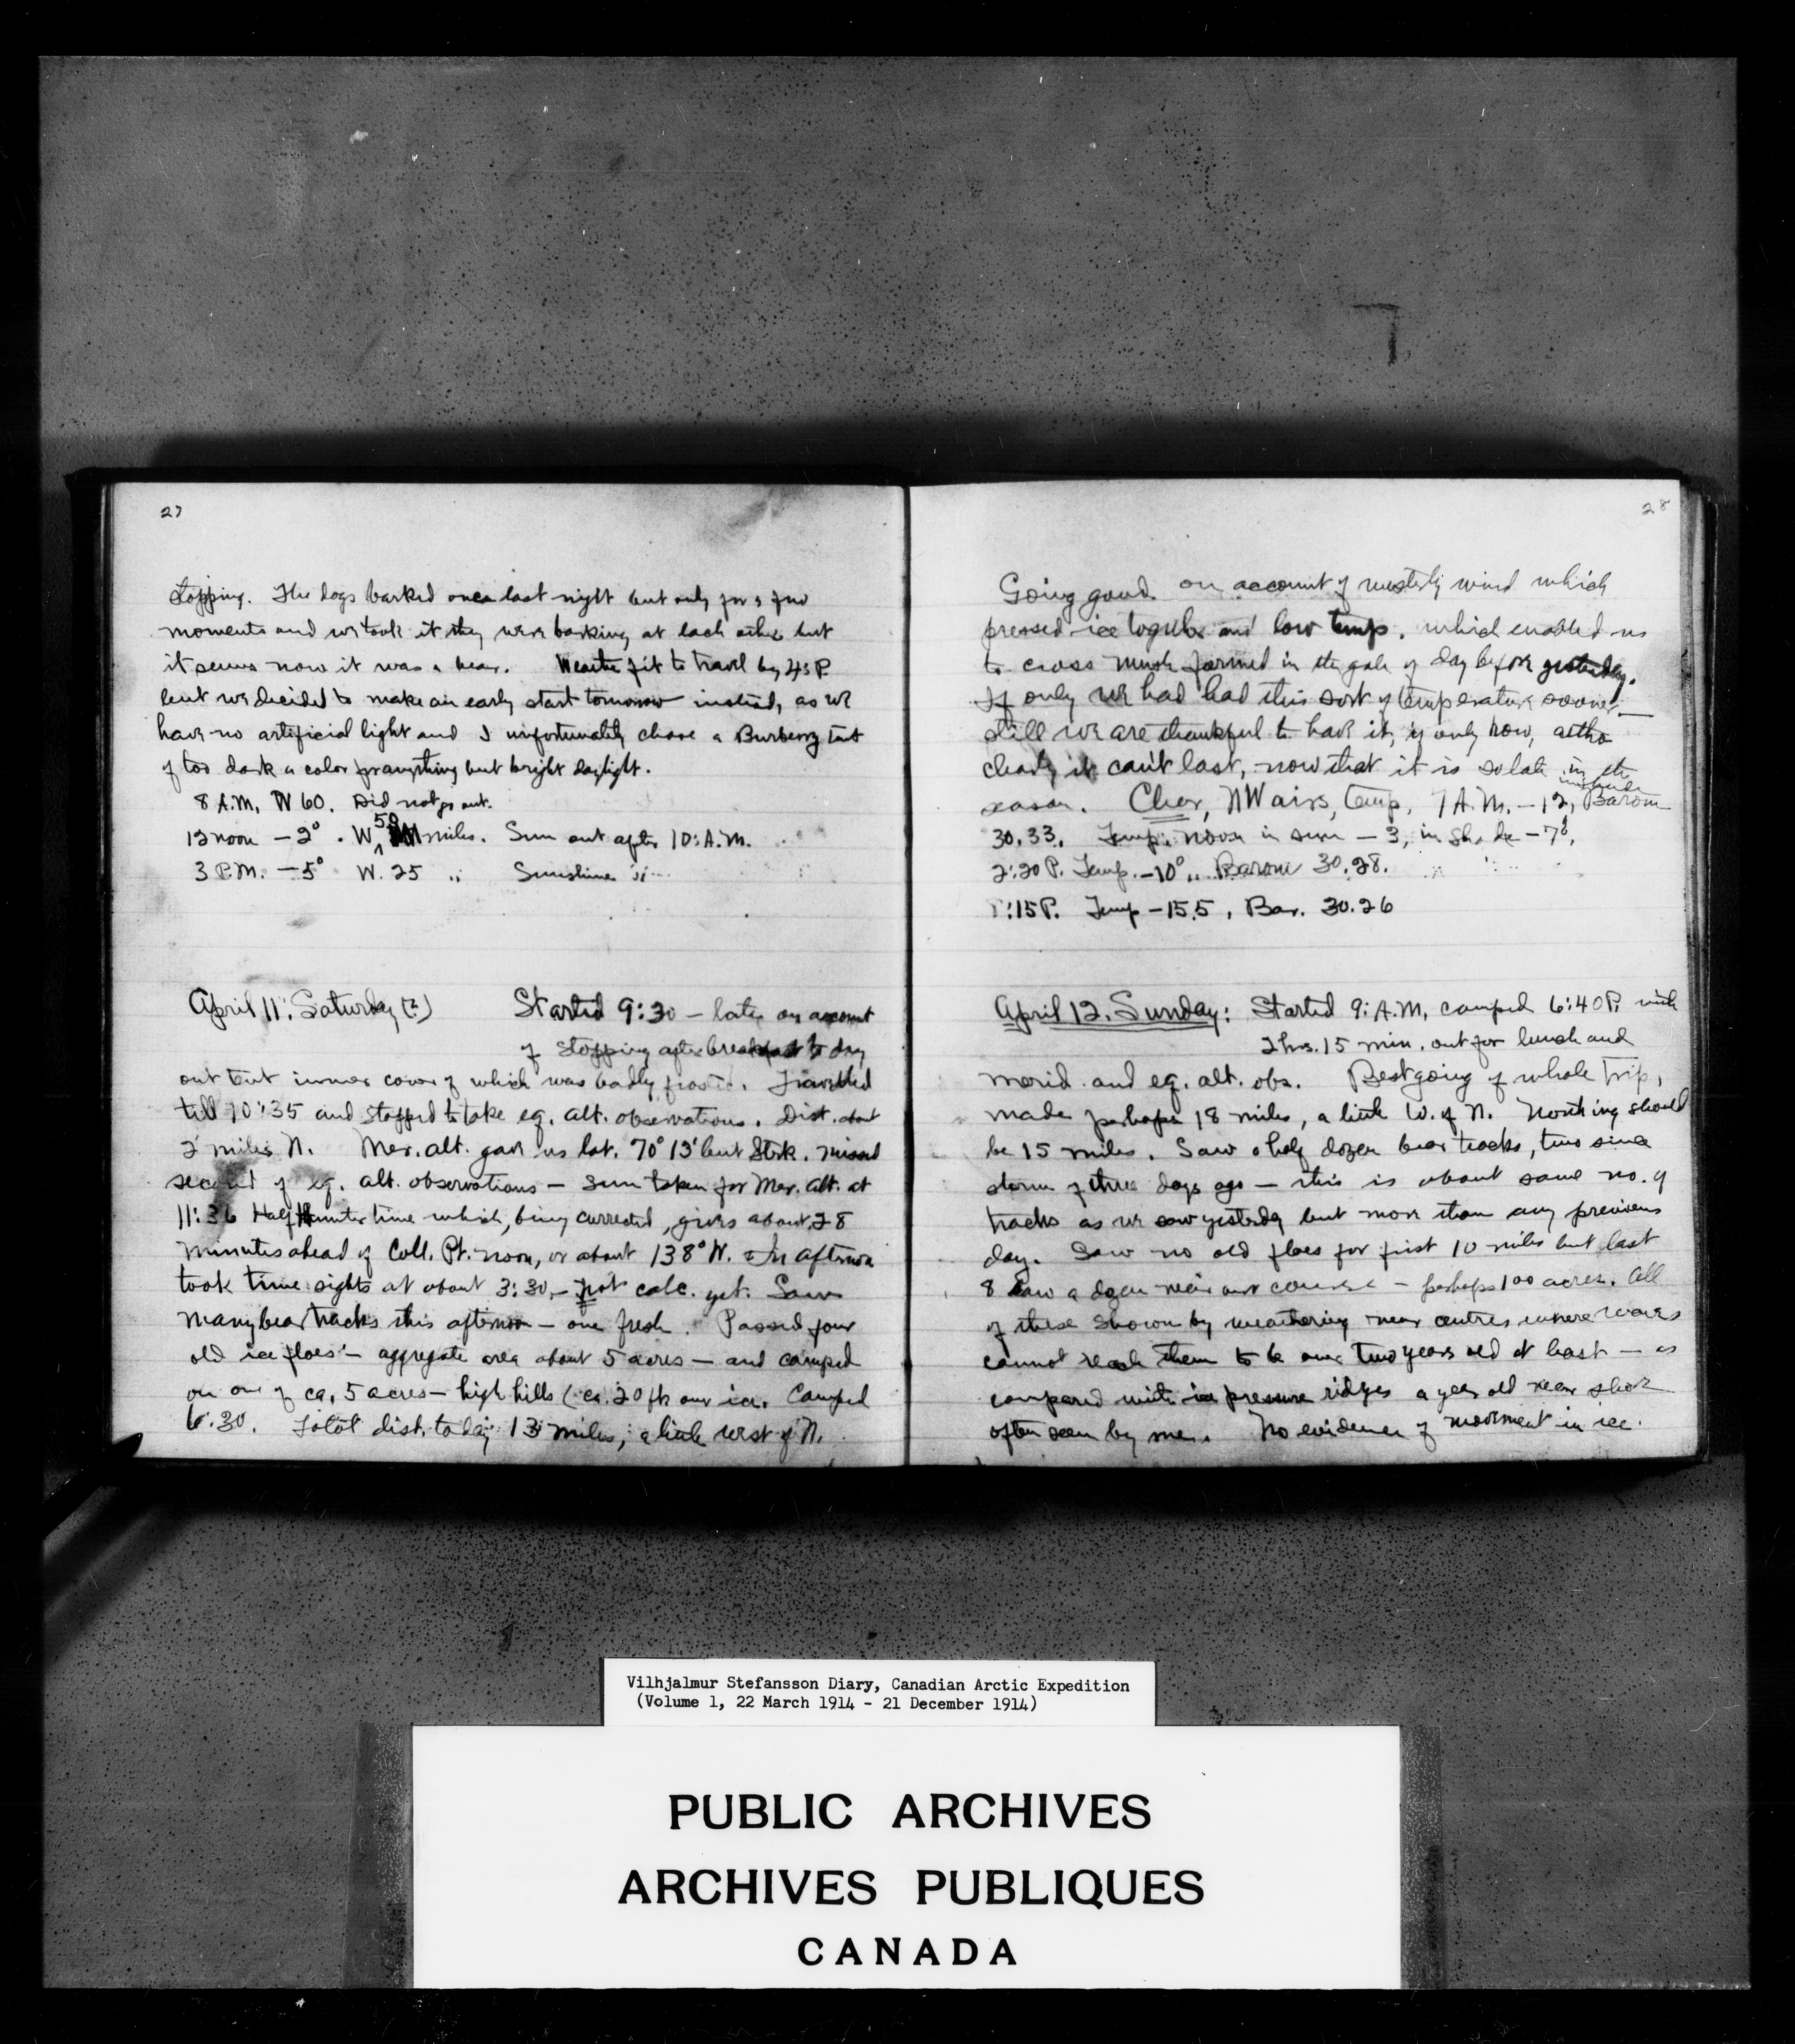 27
stopping. The dogs barked once last night but only for a few
moments and we took it they were barking at each other but
it seems now it was a bear. Weather fit to travel by 4:30 P.
but we decided to make an early start tomorrow instead, as we
have no artificial light and I unfortunately chose a Burberry tent
of too dark a color for anything but bright daylight.
8 A.M, W 60. Did not go out.
12 noon – 2° . W 50 miles. Sun out after 10: A.M.
3 P.M. – 5° W. 25 " Sunshine
April 11: Saturday (?) Started 9:30 – late on account
of stopping after breakfast to dry
out tent inner cover of which was badly frosted. Travelled
till 10:35 and stopped to take eq. alt. observations. Dist. about
2 miles N. Mer. alt. gave us lat. 70° 13' but Strk. missed
second of eq. alt. observations – Sun taken for Mer. Alt. at
11:36 Half Hunter time which, being corrected, gives about 28
minutes ahead of Coll. Pt. noon, or about 138° W. In afternoon
took time sights at about 3:30, – not calc. yet. Saw
many bear tracks this afternoon – one fresh. Passed four
old ice floes – aggregate area about 5 acres – and camped
on one of ca. 5 acres – high hills (ca. 20 ft. over ice. Camped
6:30. Total dist. today 13 miles, a little west of N.
28
Going good on account of westerly wind which
pressed ice together and low temp. which enabled us
to cross mush formed in the gale of day before yesterday.
If only we had had this sort of temperature sooner –
still we are thankful to have it, if only now, altho
clearly it can't last, now that it is so late in the
season. Clear, NW airs, temp, 7 A.M. – 12, Barom
30.33. Temp. noon in sun – 3, in shade – 7°,
2:20 P. Temp. – 10° Barom 30.28.
:15 P. Temp – 15.5, Bar. 30.26
April 12. Sunday: Started 9: A.M, camped 6:40 P. with
2 hrs. 15 min. out for lunch and
merid. and eq. alt. obs. Best going of whole trip,
made perhaps 18 miles, a little W. of N. Northing should
be 15 miles. Saw a half dozen bear tracks, two since
storm of three days ago – this is about same no. of
tracks as we saw yesterday but more than any previous
day. Saw no old floes for first 10 miles but last
8 saw a dozen near our course – perhaps 100 acres. All
of these shown by weathering near centres where waves
cannot reach them to be over two years old at least – as
compared with ice pressure ridges a year old near shore
often seen by me. No evidence of movement in ice
Vilhjalmur Stefansson Diary, Canadian Arctic Expedition
(Volume 1, 22 March 1914 - 21 December 1914)
PUBLIC ARCHIVES
ARCHIVES PUBLIQUES
CANADA